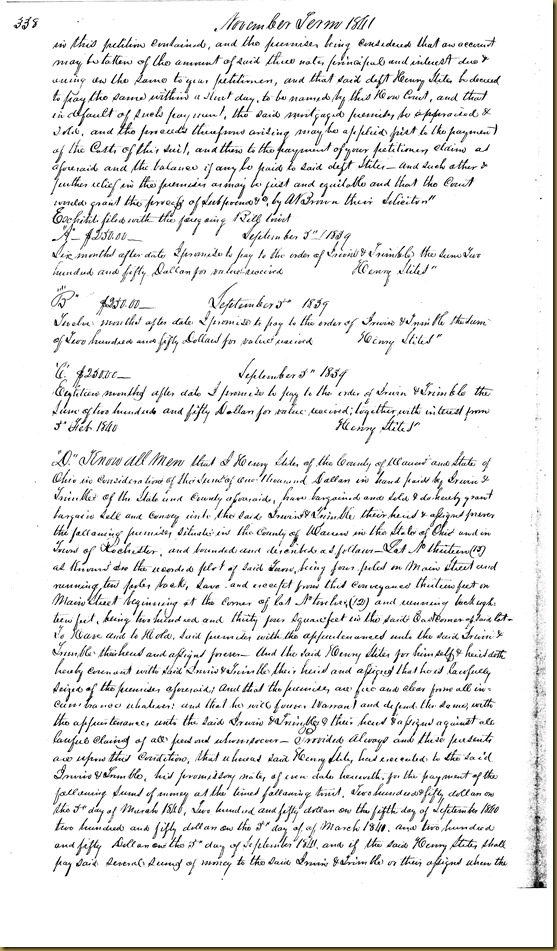 338 November Term 1841
in this petition contained, and the premises being considered that an account
may be taken of the amount of said three notes principal and interest due &
owing on the same to your petitioners, and that said deft Henry Stiles be decreed
to pay the same within a short day, to be named by this Hon Court, and that
in default of such payment, the said mortgaged premises be appraised &
sold, and the proceeds therefrom arising may be applied first to the payment
of the Costs of this suit, and then to the payment of your petitioners claim as
aforesaid and the balance if any be paid to said deft Stiles – And such other &
further relief in the premises as may be just and equitable and that the Court
would grant the process of Subpoena &c, by A H Brown their Solicitor"
Exhibits filed with the foregoing Bill to wit
"A – $250.00 – September 5th 1839
Six months after date I promise to pay to the order of Irwin & Trimble the sum Two
hundred and fifty Dollars for value received Henry Stiles"
"B" $250.00 – September 5th 1839
Twelve months after date I promise to pay to the order of Irwin & Trimble the sum
of Two hundred and fifty Dollars for value received Henry Stiles"
"C" $250.00 – September 5th 1839
Eighteen months after date I promise to pay to the order of Irwin & Trimble the
Sum of two hundred and fifty Dollars for value received, together with interest from
5th Feb 1840 Henry Stiles"
"D." Know all Men that I Henry Stiles, of the County of Warren and State of
Ohio in consideration of the Sum of One thousand Dollars in hand paid by Irwin &
Trimble of the State and County aforesaid, have bargained and sold & do hereby grant
bargain Sell and Convey unto the said Irwin & Trimble their heirs & assigns forever
the following premises situate in the County of Warren in the State of Ohio and in
Town of Rochester, and bounded and described as follows – Lot No thirteen (13)
as thereon on the recorded plat of said Town, being four poles on Main Street and
running ten poles back, Save and except from this conveyance thirteen feet on
Main Street beginning at the corner of Lot No twelve, (12) and running back eigh-
teen feet, being two hundred and thirty four square feet in the said East corner of said Lot –
To Have and to Hold, said premises with the appurtenances unto the said Irwin &
Trimble their heirs and assigns forever – And the said Henry Stiles for himself & heirs doth
hereby covenant with said Irwin & Trimble their heirs and assigns that he is lawfully
seized of the premises aforesaid; And that the premises are free and clear from all in-
cumbrance whatever: and that he will forever Warrant and defend the same, with
the appurtenances unto the said Irwin & Trimble & their heirs & assigns against all
lawful Claims of all persons whomsoever – Provided Always and these presents
are upon this Condition, that whereas said Henry Stiles, has executed to the said
Irwin & Trimble, his promissory notes, of even date herewith, for the payment of the
following sums of money at the times following towit. Two hundred & fifty dollars on
the 5th day of March 1840, Two hundred and fifty dollars on the fifth day of September 1840
two hundred and fifty dollars on the 5th day of of March 1841. and two hundred
and fifty Dollars on the 5th day of September 1841. and if the said Henry Stiles shall
pay said several sums of money to the said Irwin & Trimble or their assigns when the